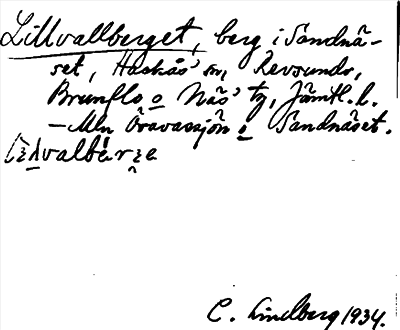 Lillvallberget, berg i Sandnä-
set, Haskås' sn, Revsunds,
Brunflo o Näs' tg, Jämtl. l.
— Mln Öravassjön o Sandnäset.
C. Lindberg 1934.